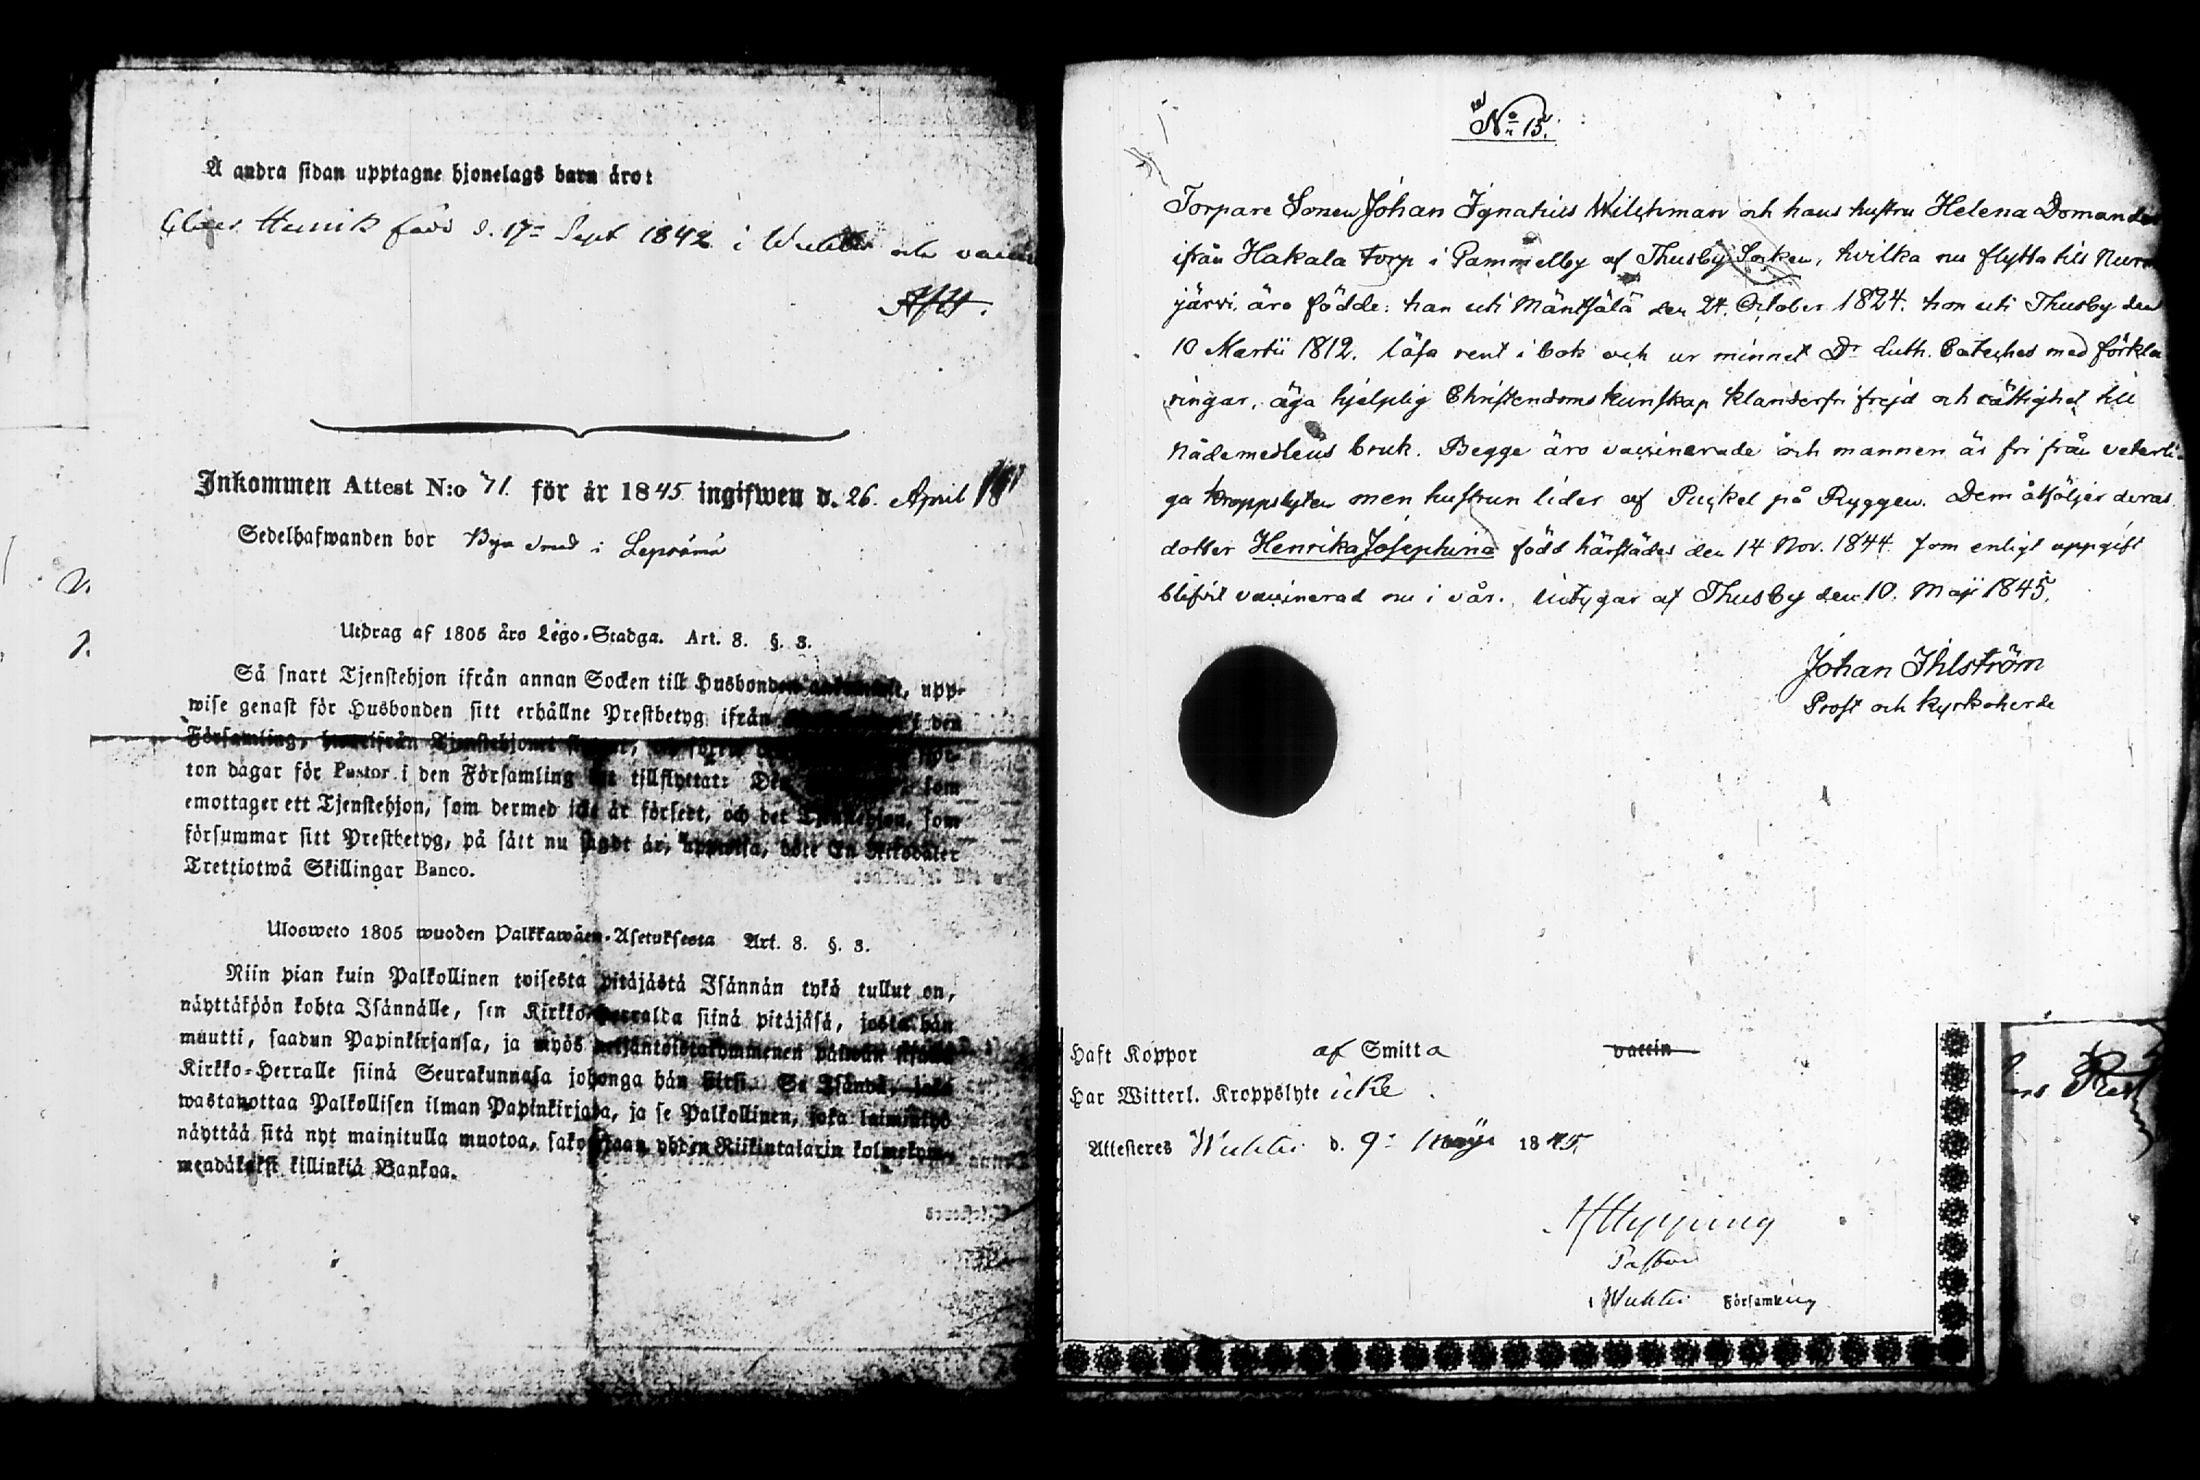 Å andra sidan upptagne hjonelags barn äro:
Claes Henrik född d. 17de Sept 1842 i Wichtis och
Inkommen Attest N:o 71. för år 1845 ingifwen d. 26. April
Sedelhafwanden bor Bya Smed i Lepsämä
Utdrag af 1805 åro Lego-Stadga. Art. 8. §. 3.
Så snart Tjenstehjon ifrån annan Socken till Husbonden, upp-
wise genast för Husbonden sitt erhållne Prestbetyg ifrån den
Församling, hwarifrån Tjenstehjonet
ton dagar för Pastor i den Församling tillflyttat: Den som
emottager ett Tjenstehjon, som dermed icke är försedt, och det Tjenstehjon, som
försummar sitt Prestbetyg, på sätt nu sagdt är, uppwisa, böte En Riksdaler
Trettiotwå Skillingar Banco.
Uloswето 1805 wuoden Palkkawäen-Asetuksesta Art. 8. §. 3.
Niin pian kuin Palkollinen toisesta pitäjästä Isännän tykö tullut on,
näyttäköön kohta Isännälle, sen Kirkko-Herralda siinä pitäjäsä, josta hän
muutti, saadun Papinkirjansa, ja myös neljäntoistakymmenen päiwän sisällä
Kirkko-Herralle siinä Seurakunnasa johonga hän siirsi. Se Isändä, joka
wastanottaa Palkollisen ilman Papinkirjata, ja se Palkollinen, joka laiminlyö
näyttää sitä nyt mainitulla muotoa, sakotetaan yhden Riikintalarin kolmekym-
mendäkaksi killinkiä Bankoa.
N:o 15.
Torpare Sonen Johan Ignatius Wilchman och hans hustru Helena Domander
ifrån Hakala torp i Gammelby af Thusby Socken, hvilka nu flytta till Nurm
järvi, äro födde: han uti Mäntsälä den 24. October 1824. hon uti Thusby den
10 Martii 1812. läsa rent i bok och ur minnet Dr Luth. Cateches med förkla
ringar, äga hjelplig Christendoms kunskap klanderfri frejd och rättighet till
Nådemedlens bruk. Begge äro vaccinerade och mannen är fri från veterli
ga kroppslyten men hustrun lider af Puckel på Ryggen. Dem åtföljer deras
dotter Henrika Josephina född härstädes den 14 Nov. 1844. som enligt uppgift
blifvit vaccinerad nu i vår. intygar af Thusby den 10. Maji 1845.
Johan Ihlström
Prost och Kyrkoherde
Haft Koppor af Smitta vaccin
Har Witterl. Kroppslyte icke
Attesteres Wichtis d. 9de Maji 1845.
Pastor
Wichtis Församling